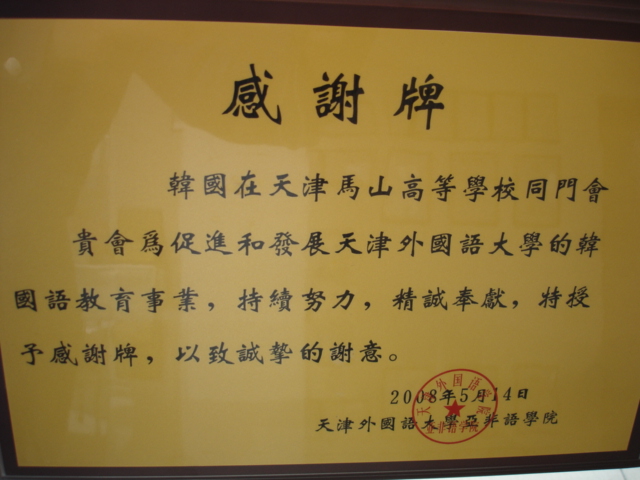 感謝牌
韓國在天津馬山高等學校同門會
貴會爲促進和發展天津外國語大學的韓
國語教育事業，持續努力，精誠奉獻，特授
予感謝牌，以致誠摯的謝意。
2008年5月14日
天津外國語大學亞非語學院
天津外国语学院
亚非语学院